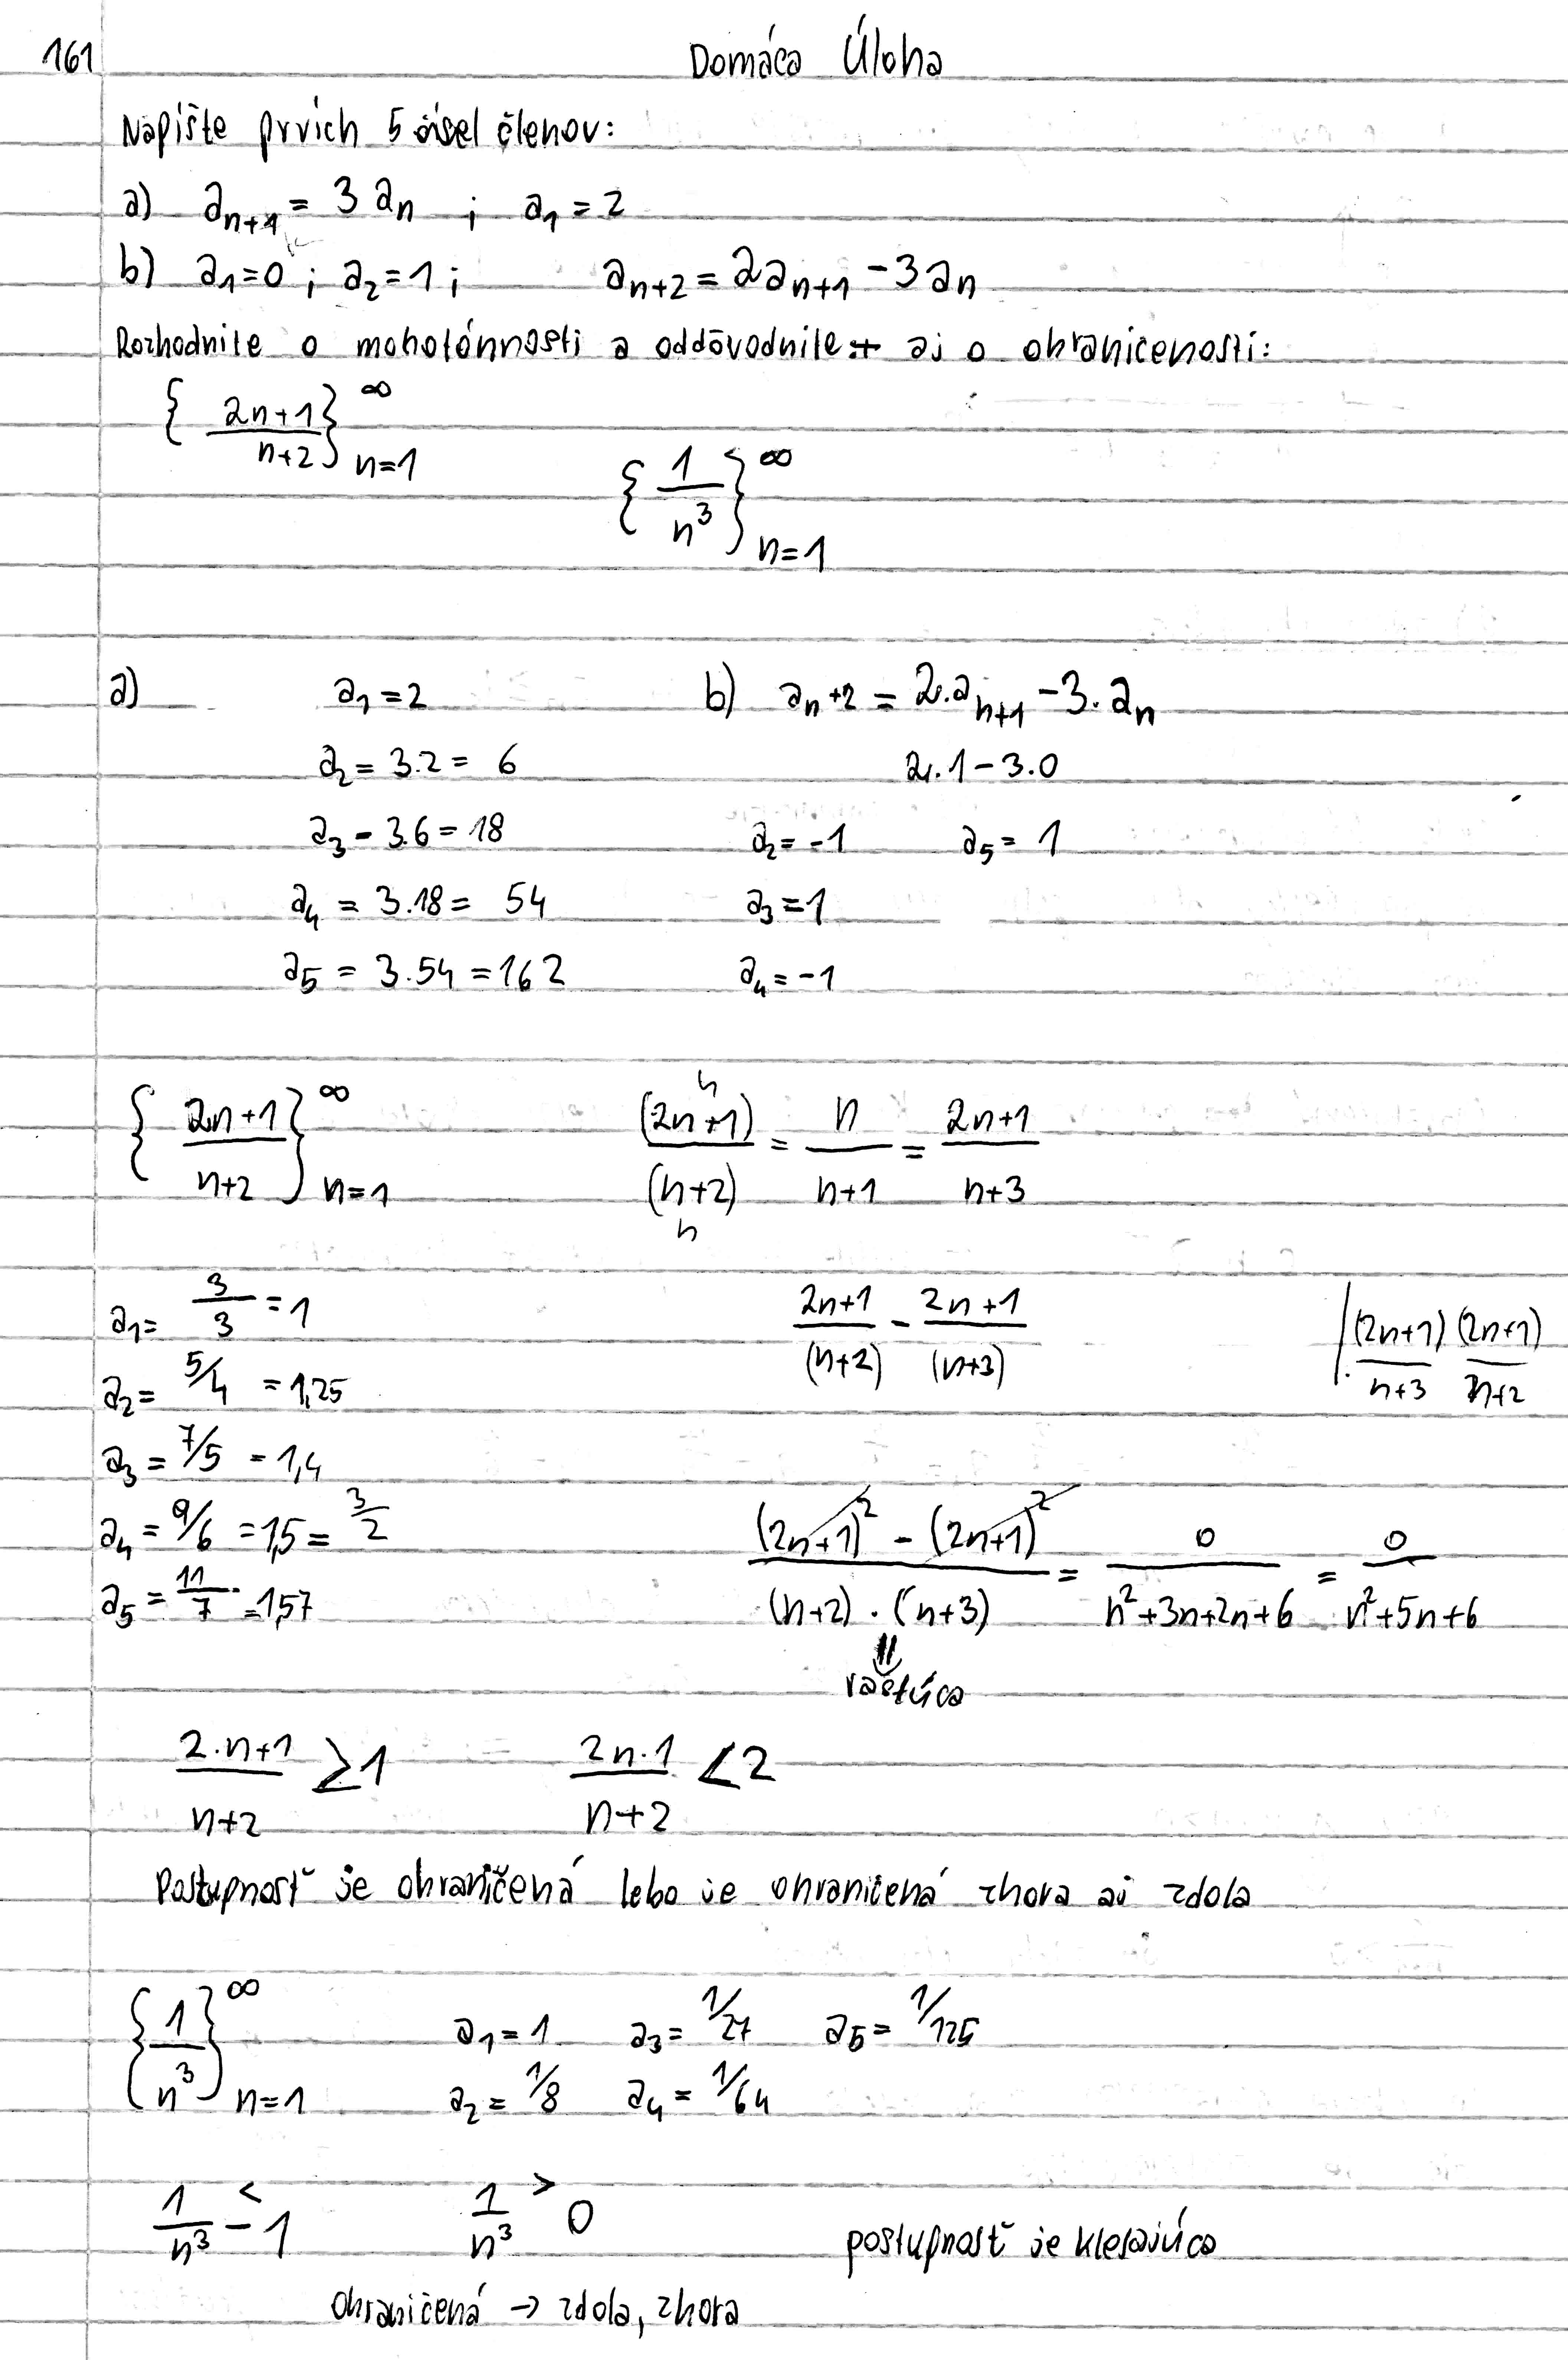 161 Domáca Úloha
Napíšte prvích 5 čísel členov:
a) a_{n+1} = 3 a_n ; a_1 = 2
b) a_1 = 0 ; a_2 = 1 ; a_{n+2} = 2a_{n+1} - 3a_n
Rozhodnite o monotónnosti a oddôvodnite + aj o ohraničenosti:
{ (2n+1)/(n+2) }^∞_{n=1}
{ 1/n^3 }^∞_{n=1}
a) a_1 = 2 b) a_n+2 = 2.a_{n+1} - 3.a_n
a_2 = 3.2 = 6 2.1 - 3.0
a_3 - 3.6 = 18 a_2 = -1 a_5 = 1
a_4 = 3.18 = 54 a_3 = 1
a_5 = 3.54 = 162 a_4 = -1
{ (2n+1)/(n+2) }^∞_{n=1} (2n+1)/(n+2) = n/(n+1) = (2n+1)/(n+3)
a_1 = 3/3 = 1 (2n+1)/(n+2) - (2n+1)/(n+3) /. (2n+1)/(n+3) (2n+1)/(n+2)
a_2 = 5/4 = 1,25
a_3 = 7/5 = 1,4
a_4 = 9/6 = 1,5 = 3/2 ((2n+1)^2 - (2n+1)^2)/((n+2) . (n+3)) = 0/(n^2+3n+2n+6) = 0/(n^2+5n+6)
a_5 = 11/7 = 1,57
⇓
rastúca
(2.n+1)/(n+2) ≥ 1 (2n.1)/(n+2) < 2
Postupnosť je ohraničená lebo je ohraničená zhora aj zdola
{ 1/n^3 }^∞_{n=1} a_1 = 1 a_3 = 1/27 a_5 = 1/125
a_2 = 1/8 a_4 = 1/64
1/n^3 ≤ 1 1/n^3 > 0 postupnosť je klesajúca
ohraničená → zdola, zhora